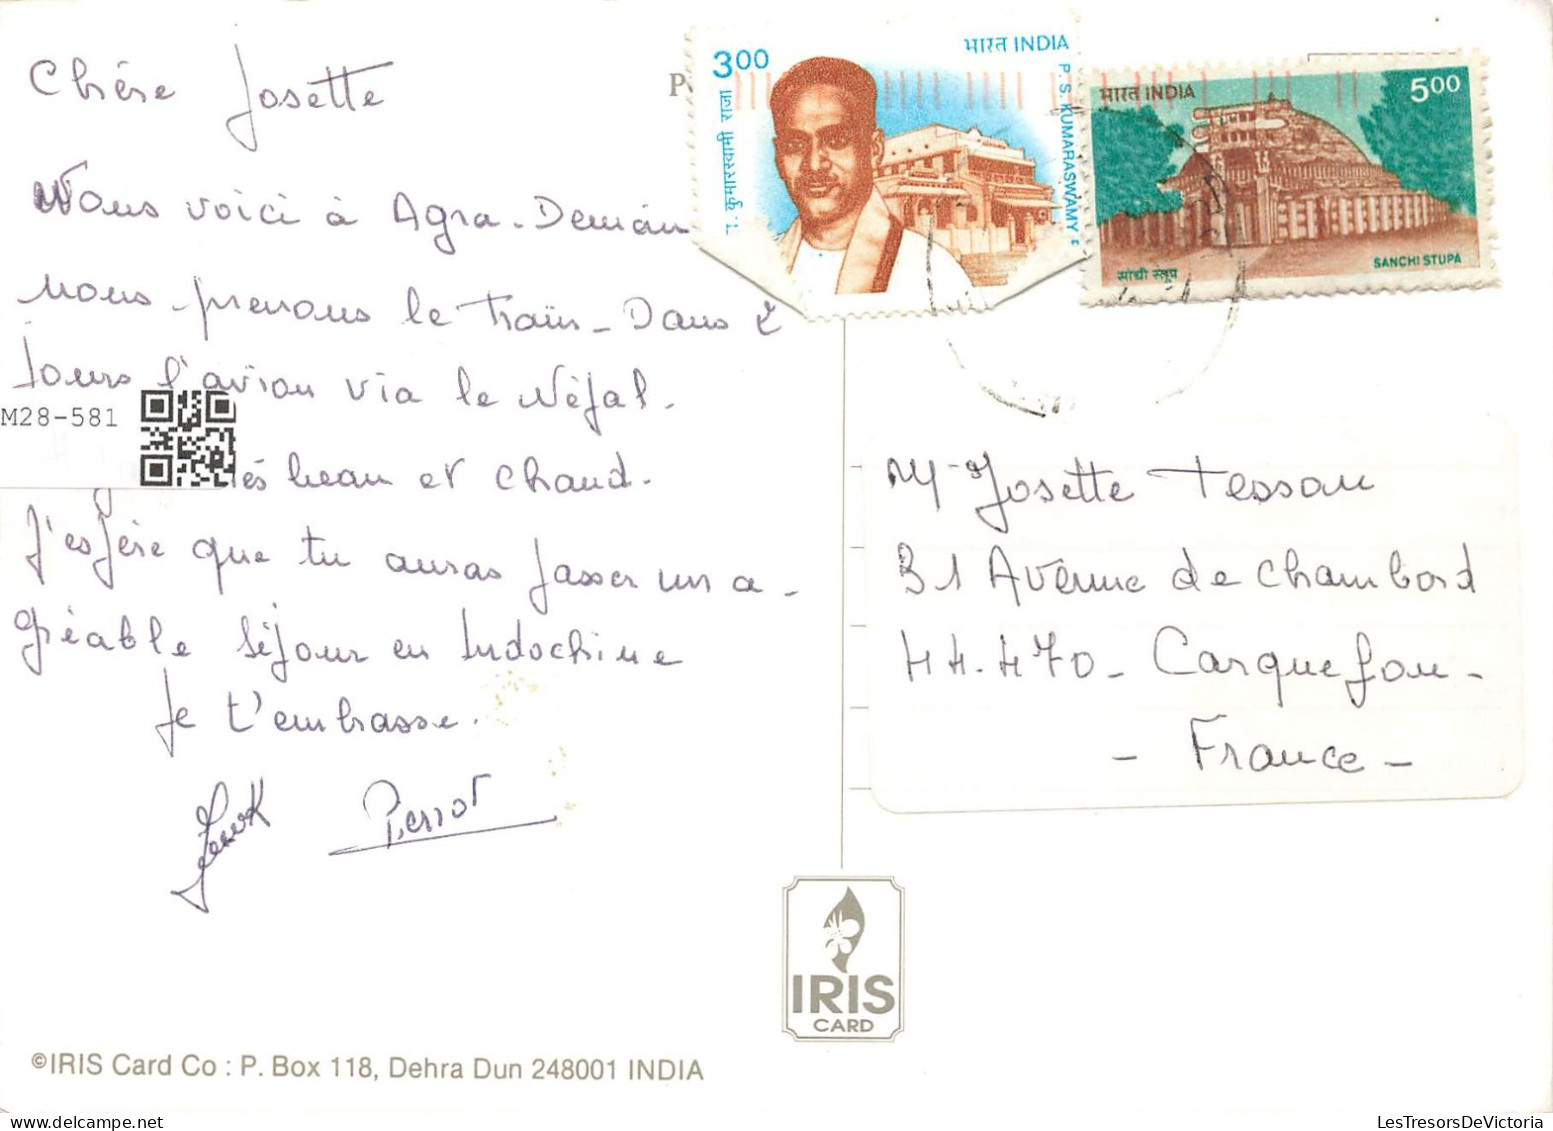 Chère Josette
Nous voici à Agra - Demain
nous prenons le train - Dans 2
jours l'avion via le Népal.
beau et chaud.
J'espère que tu auras passer un a-
gréable séjour en Indochine
Je t'embrasse.
Perrot
3.00
भारत INDIA
P. S. KUMARASWAMY
कुमारस्वामी राजा
भारत INDIA
5.00
सांची स्तूप
SANCHI STUPA
M28-581
Josette Tessou
31 Avenue de Chambord
44.470 - Carquefou -
- France -
IRIS
CARD
©IRIS Card Co : P. Box 118, Dehra Dun 248001 INDIA
LesTresorsDeVictoria